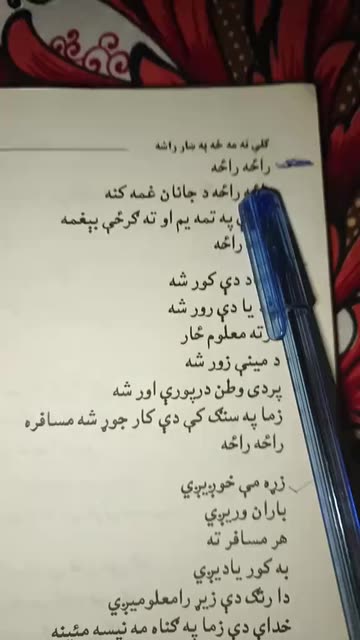 گلې نه مه ځه په ښار راشه
راځه راځه
راځه د جانان غمه کنه
په تمه يم او ته ګرځې بېغمه
راځه
د دې کور شه
يا دې رور شه
رته معلوم ځار
د مينې زور شه
پردی وطن درپورې اور شه
زما په سنګ کې دې کار جوړ شه مسافره
راځه راځه
زړه مې خوږيږي
باران وريږي
هر مسافر ته
به کور ياديږي
دا رنګ دې زيړ رامعلوميږي
خدای دې زما په ګناه مه نيسه مئينه